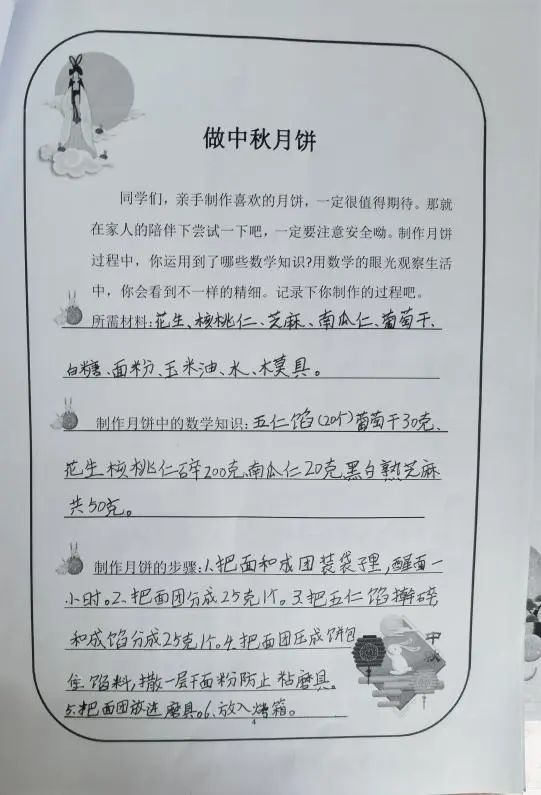 做中秋月饼
同学们，亲手制作喜欢的月饼，一定很值得期待。那就
在家人的陪伴下尝试一下吧，一定要注意安全呦。制作月饼
过程中，你运用到了哪些数学知识?用数学的眼光观察生活
中，你会看到不一样的精细。记录下你制作的过程吧。
所需材料:花生、核桃仁、芝麻、南瓜仁、葡萄干、
白糖、面粉、玉米油、水、木莫具。
制作月饼中的数学知识:五仁馅(20个)葡萄干30克、
花生核桃仁碎200克、南瓜仁20克、黑白熟芝麻
共50克。
制作月饼的步骤:1、把面和成团装袋子里,醒面一
小时。2、把面团分成25克1个。3、把五仁馅擀碎
和成馅分成25克1个。4、把面团压成饼包
住馅料,撒一层干面粉防止粘磨具。
5、把面团放进磨具。6、放入烤箱。
中秋
4